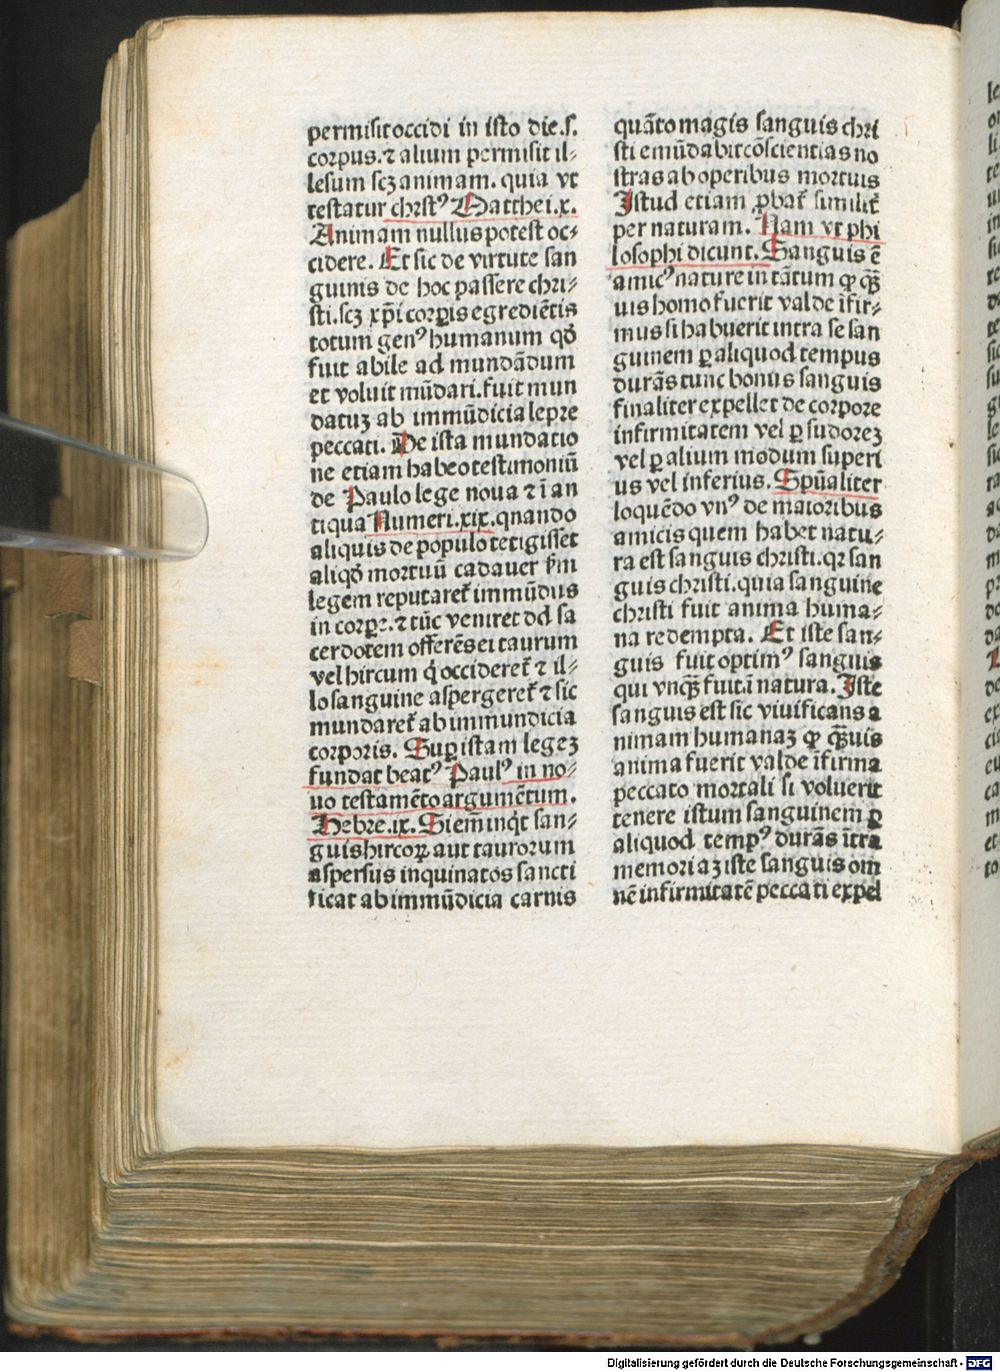 permisit occidi in isto die.s.
corpus.⁊ alium permisit il⸗
lesum scꝫ animam. quia vt
testatur christꝰ Matthei.x.
Animam nullus potest oc⸗
cidere. Et sic de virtute san
guinis de hoc passere chri⸗
sti.scꝫ xp̄i corꝑis egrediētis
totum genꝰ humanum qd̓
fuit abile ad mundādum
et voluit mūdari.fuit mun
datuꝫ ab immūdicia lepre
peccati. De ista mundatio
ne etiam habeo testimoniū
de Paulo lege noua ⁊ ī an
tiqua Numeri.xix.quando
aliquis de populo tetigisset
aliqd̓ mortuū cadauer
legem reputaret̉ immūdus
in corpꝑe.⁊ tūc veniret ad sa
cerdotem offerēs ei taurum
vel hircum q̇ occideret̉ ⁊ il⸗
lo sanguine aspergeret̉ ⁊ sic
mundaret̉ ab immundicia
corporis. Suꝑ istam legeꝫ
fundat beatꝰ Paulꝰ in no⸗
uo testamēto argumētum.
Hebre.ix. Si em̄ inqt̓ san⸗
guis hircoꝝ aut taurorum
aspersus inquinatos sancti
ficat ab immūdicia carnis
quāto magis sanguis chri
sti emūdabit cōscientias no
stras ab operibus mortuis
Istud etiam ꝓbat̉ similit̉
per naturam. Nam vt phi
losophi dicunt. Sanguis ē
amicꝰ nature in tātum ꝙ qꝫ̄
uis homo fuerit valde īfir⸗
mus si habuerit intra se san
guinem ꝑ aliquod tempus
durās tunc bonus sanguis
finaliter expellet de corpore
infirmitatem vel ꝑ sudoreꝫ
vel ꝑ alium modum superi
us vel inferius. Spūaliter
loquēdo vnꝰ de maioribus
amicis quem habet natu⸗
ra est sanguis christi.qꝛ san
guis christi.quia sanguine
christi fuit anima huma⸗
na redempta. Et iste san⸗
guis fuit optimꝰ sanguis
qui vnqꝫ̄ fuit.ī natura. Iste
sanguis est sic viuificans a
nimam humanaꝫ ꝙ qꝫ̄uis
anima fuerit valde īfirma
peccato mortali si voluerit
tenere istum sanguinem ꝑ
aliquod tempꝰ durās ītra
memoriaꝫ iste sanguis om
nē infirmitatē peccati expel
Digitalisierung gefördert durch die Deutsche Forschungsgemeinschaft - DFG